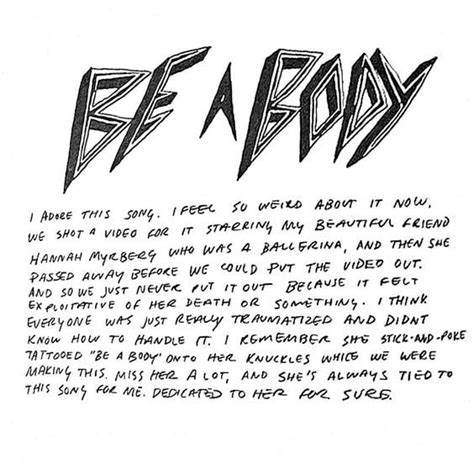 BE A BODY
I ADORE THIS SONG. I FEEL SO WEIRD ABOUT IT NOW.
WE SHOT A VIDEO FOR IT STARRING MY BEAUTIFUL FRIEND
HANNAH MYRBERG WHO WAS A BALLERINA, AND THEN SHE
PASSED AWAY BEFORE WE COULD PUT THE VIDEO OUT.
AND SO WE JUST NEVER PUT IT OUT BECAUSE IT FELT
EXPLOITATIVE OF HER DEATH OR SOMETHING. I THINK
EVERYONE WAS JUST REALLY TRAUMATIZED AND DIDNT
KNOW HOW TO HANDLE IT. I REMEMBER SHE STICK-AND-POKE
TATTOOED "BE A BODY" ONTO HER KNUCKLES WHILE WE WERE
MAKING THIS. MISS HER A LOT, AND SHE'S ALWAYS TIED TO
THIS SONG FOR ME. DEDICATED TO HER FOR SURE.